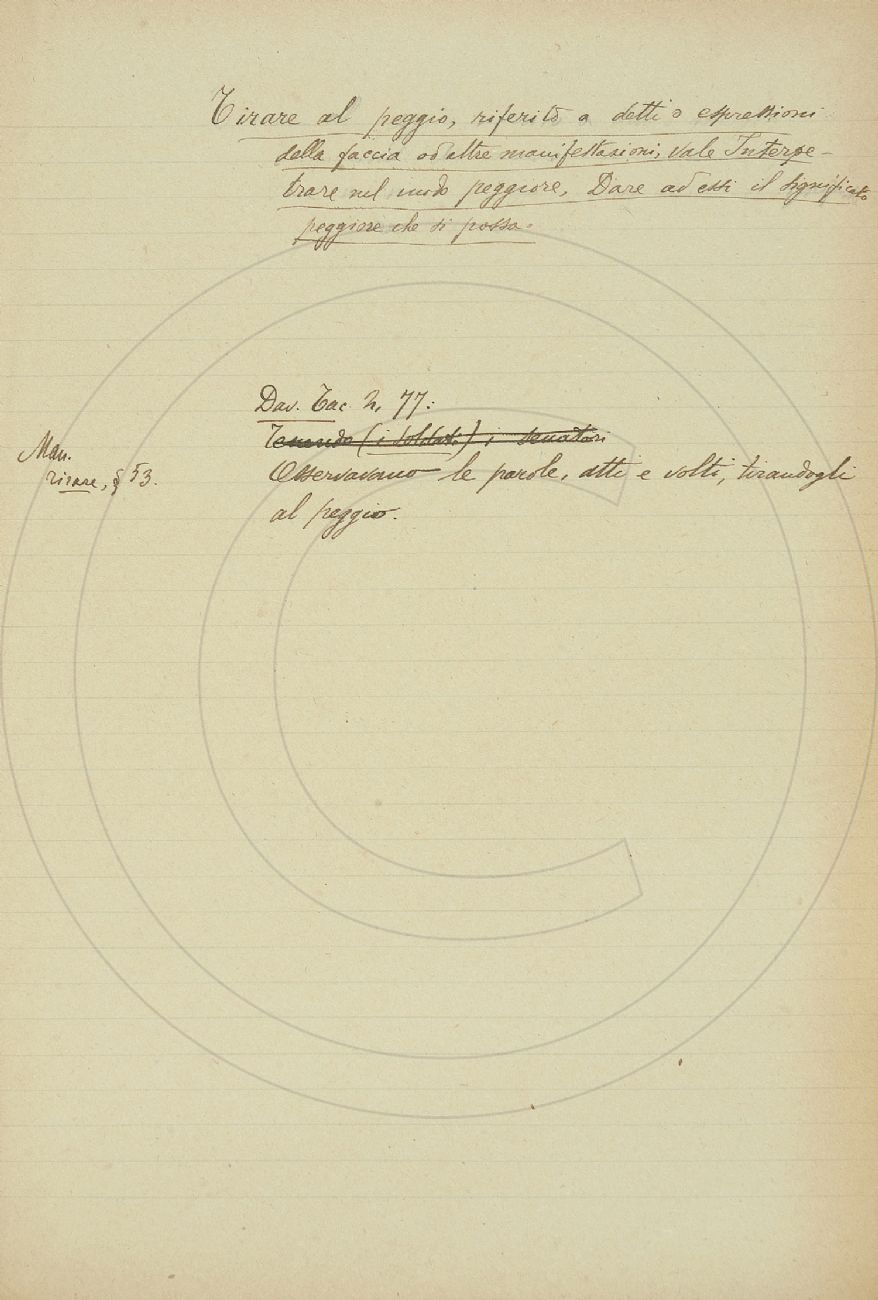 Tirare al peggio, riferito a detti o espressioni
della faccia od altre manifestazioni, vale Interpe-
trare nel modo peggiore, Dare ad essi il significato
peggiore che si possa.
Dav. Tac. 2, 77:
Temendo (i soldati) i senatori
Man.
Tirare, § 53.
Osservavano le parole, atti e volti, tirandogli
al peggio.